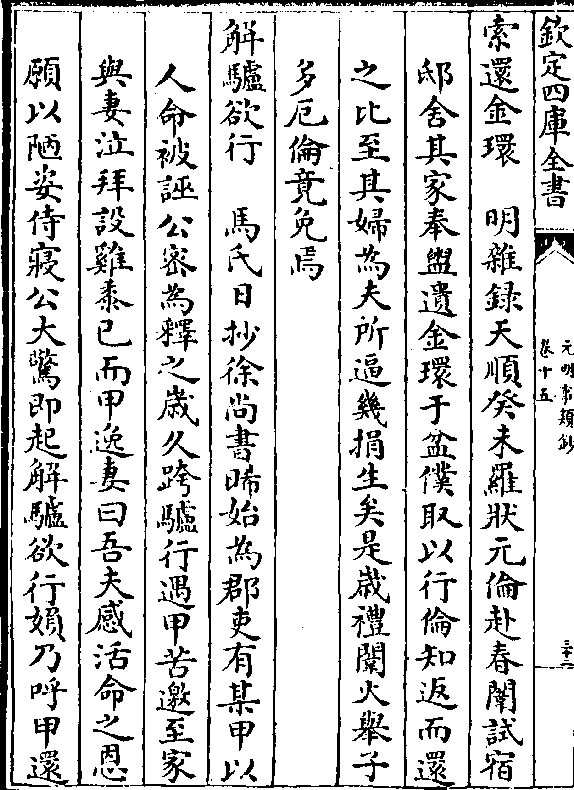 欽定四庫全書
元明事類鈔
卷十五
三十二
索還金環　明雜録天順癸未羅狀元倫赴春闈試宿
邸舍其家奉盥遺金環于盆僕取以行倫知返而還
之比至其婦為夫所逼幾捐生矣是歳禮闈火舉子
多厄倫竟免焉
解驢欲行　馬氏日抄徐尚書晞始為郡吏有某甲以
人命被誣公密為釋之歳久跨驢行遇甲苦邀至家
與妻泣拜設雞黍已而甲逸妻曰吾夫感活命之恩
願以陋姿侍寢公大驚即起解驢欲行婦乃呼甲還